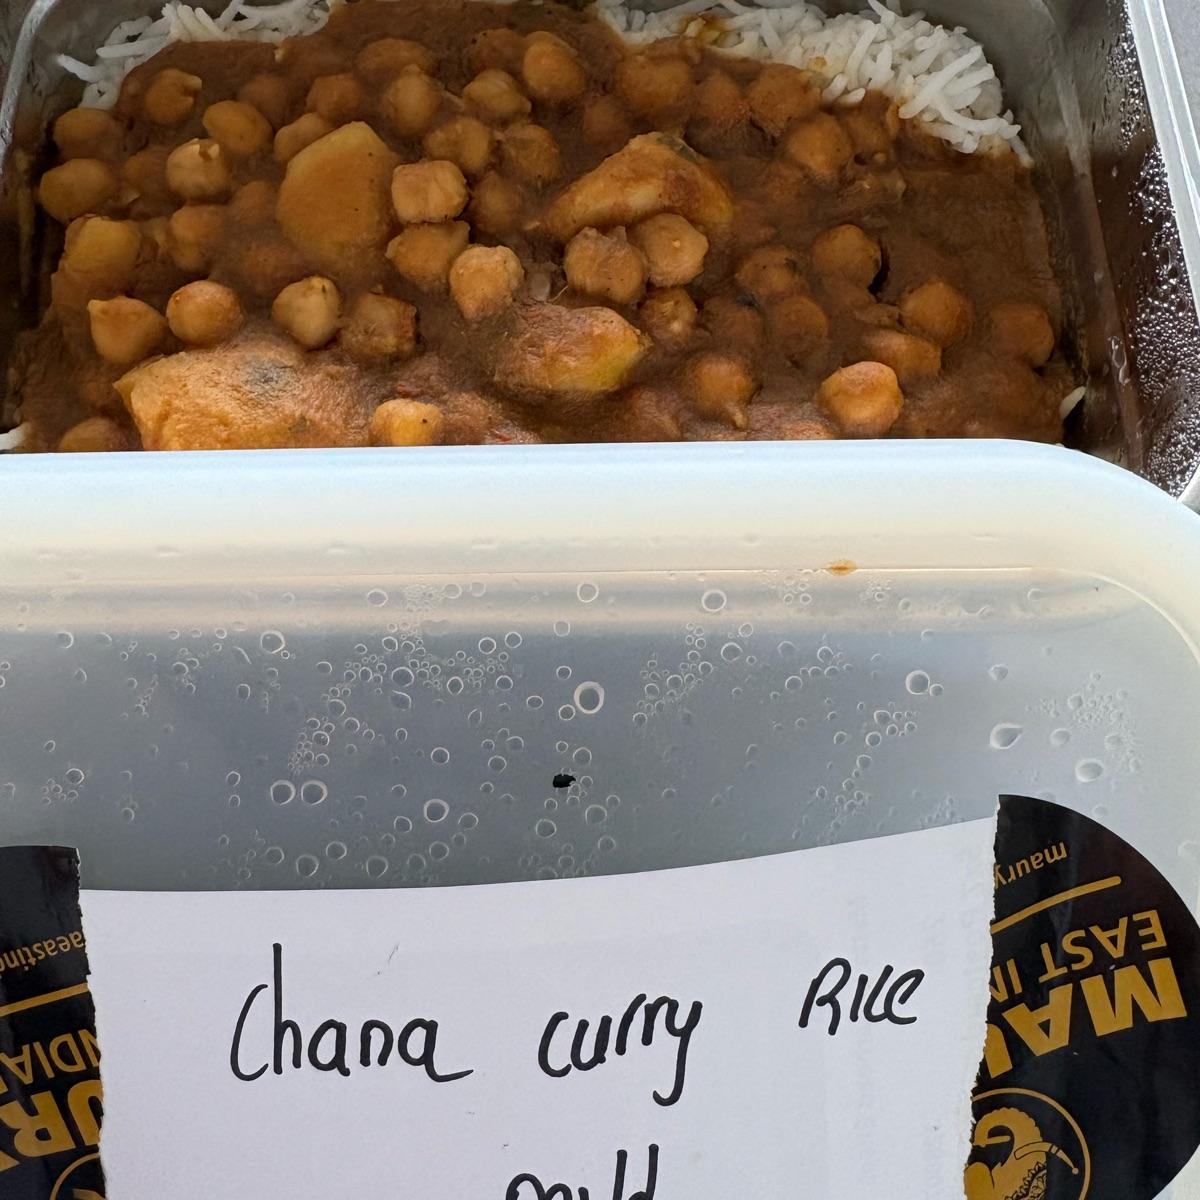 Chana curry Rice
mild
maury
EAST IN
MAU
aeastind
NDIA
UR